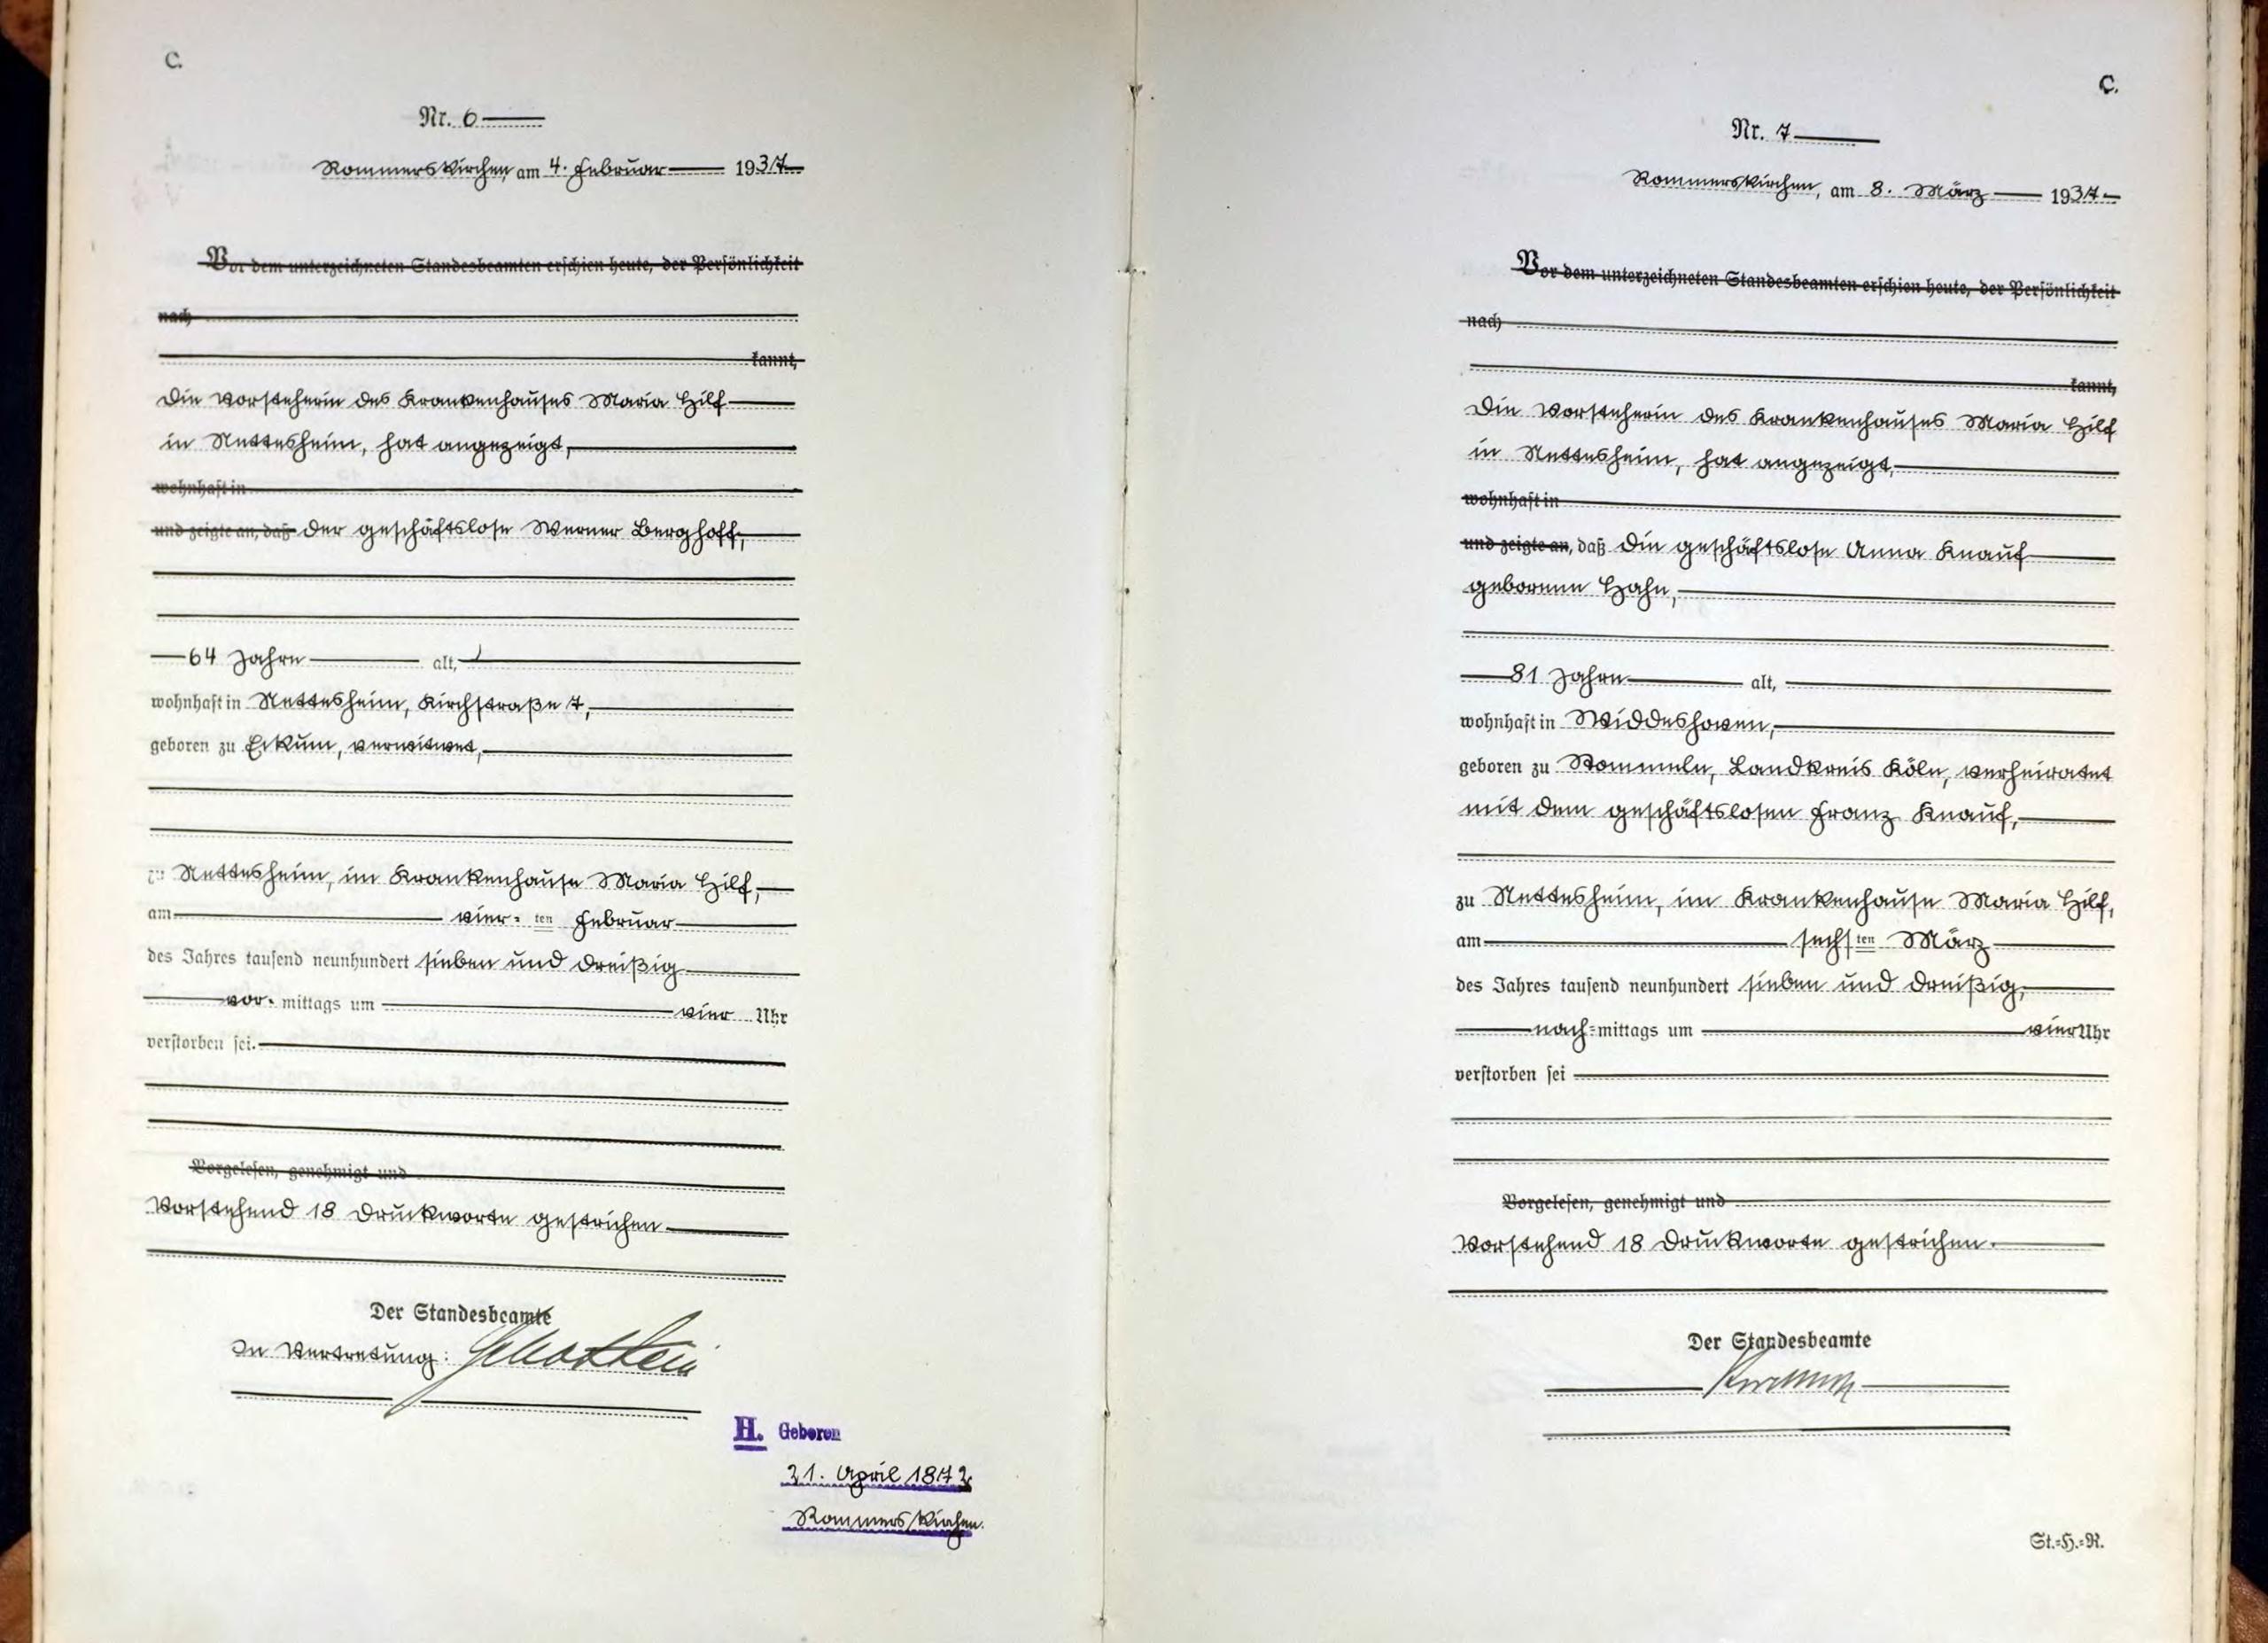 C.
Nr. 6
Rommerskirchen, am 4. Februar 1937
Vor dem unterzeichneten Standesbeamten erschien heute, der Persönlichkeit
nach
kannt,
Die Vorsteherin des Krankenhauses Maria Hilf
in Nettesheim, hat angezeigt,
wohnhaft in
und zeigte an, daß der geschäftslose Werner Berghoff,
64 Jahre alt,
wohnhaft in Nettesheim, Kirchstraße 7,
geboren zu Eckum, verwitwet,
zu Nettesheim, im Krankenhause Maria Hilf,
am vier-ten Februar
des Jahres tausend neunhundert sieben und dreißig
vor-mittags um vier Uhr
verstorben sei.
Vorgelesen, genehmigt und
Vorstehend 18 Druckworte gestrichen
Der Standesbeamte
In Vertretung:
H. Geboren
21. April 1872
Rommerskirchen.
C.
Nr. 7
Rommerskirchen, am 8. März 1937
Vor dem unterzeichneten Standesbeamten erschien heute, der Persönlichkeit
nach
kannt,
Die Vorsteherin des Krankenhauses Maria Hilf
in Nettesheim, hat angezeigt,
wohnhaft in
und zeigte an, daß die geschäftslose Anna Knauf
geborene Hahn,
81 Jahre alt,
wohnhaft in Widdeshoven,
geboren zu Stommeln, Landkreis Köln, verheiratet
mit dem geschäftslosen Franz Knauf,
zu Nettesheim, im Krankenhause Maria Hilf,
am sechsten März
des Jahres tausend neunhundert sieben und dreißig,
nach-mittags um vier Uhr
verstorben sei
Vorgelesen, genehmigt und
Vorstehend 18 Druckworte gestrichen.
Der Standesbeamte
St.-H.-R.